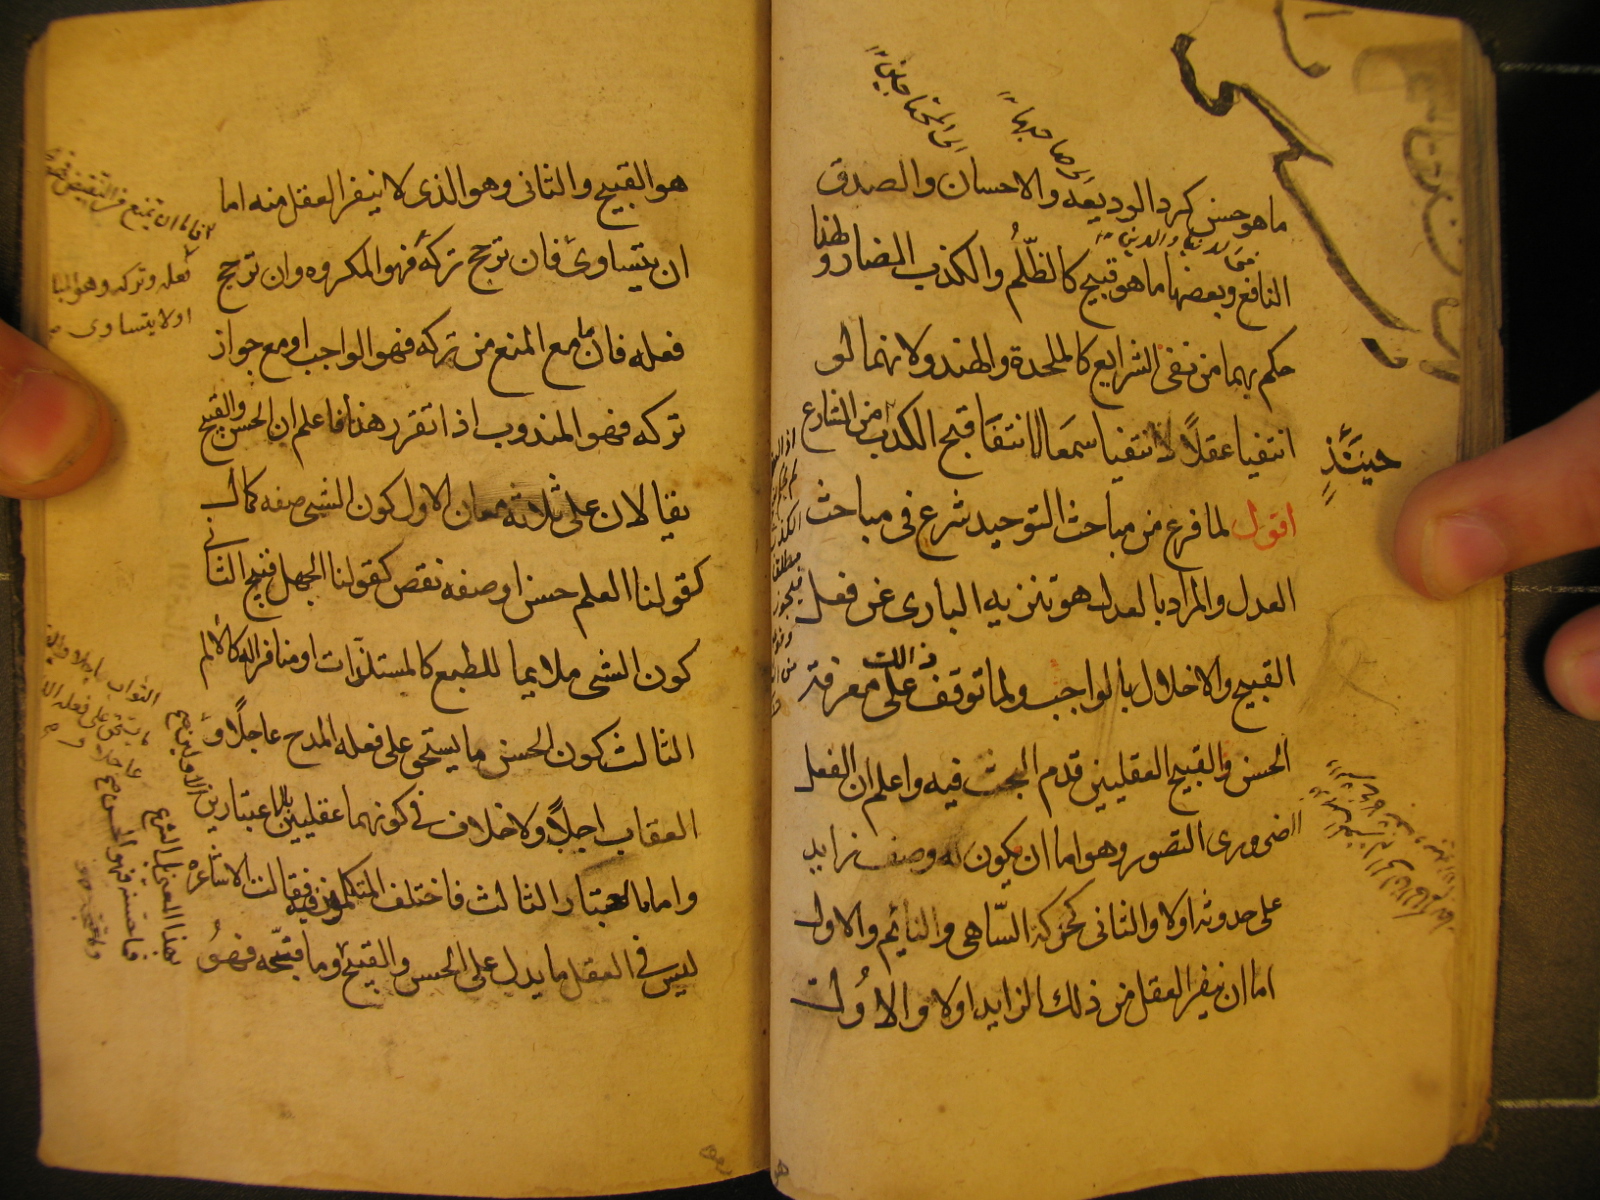 الى المحتاجين ١٢
الى صاحبها ١٢
ما هو حسن كرد الوديعه والاحسان والصدق
النافع وبعضها ما هو قبيح كالظلم والكذب الضار ولهذا
حكم بهما من نفى الشرايع كالملحدة والهند ولانهما لو
انتفيا عقلاً لانتفيا سمعا لانتفا قبح الكذب من الشارع
حينئذٍ
اقول لما فرغ من مباحث التوحيد شرع فى مباحث
العدل والمراد بالعدل هو تنزيه البارى عن فعل
القبيح والاخلال بالواجب ولما توقف ذالك على معرفة
الحسن والقبيح العقليين قدم البحث فيه واعلم ان الفعل
الضرورى التصور وهو اما ان يكون له وصف زايد
على حدوثه اولا والثانى كحركة الساهى والنايم والاول
اما ان ينفر العقل من ذلك الزايد اولا والاول
هو القبيح والثانى وهو الذى لا ينفر العقل منه اما
ان يتساوى فان ترجح تركه فهو المكروه وان ترجح
فعله فان مع المنع من تركه فهو الواجب او مع جواز
تركه فهو المندوب اذا تقرر هذا فاعلم ان الحسن والقبح
يقالان على ثلاثة معان الاول كون الشى صفه كمال
كقولنا العلم حسن او صفه نقص كقولنا الجهل قبيح الثانى
كون الشى ملايما للطبع كالمستلذات او منافرا له كالالم
الثالث كون الحسن ما يستحق على فعله المدح عاجلاً و
العقاب اجلاً ولا خلاف فى كونهما عقليين بالاعتبارين الاولين
واما بالاعتبار الثالث فاختلف المتكلمون فيه فقالت الاشاعرة
ليس فى العقل ما يدل على الحسن والقبح
وما قبحه فهو
فعله وتركه وهو المبا
اولا يتساوى
بهذا المعنى بل الشرع
فما حسنه فهو الحسن